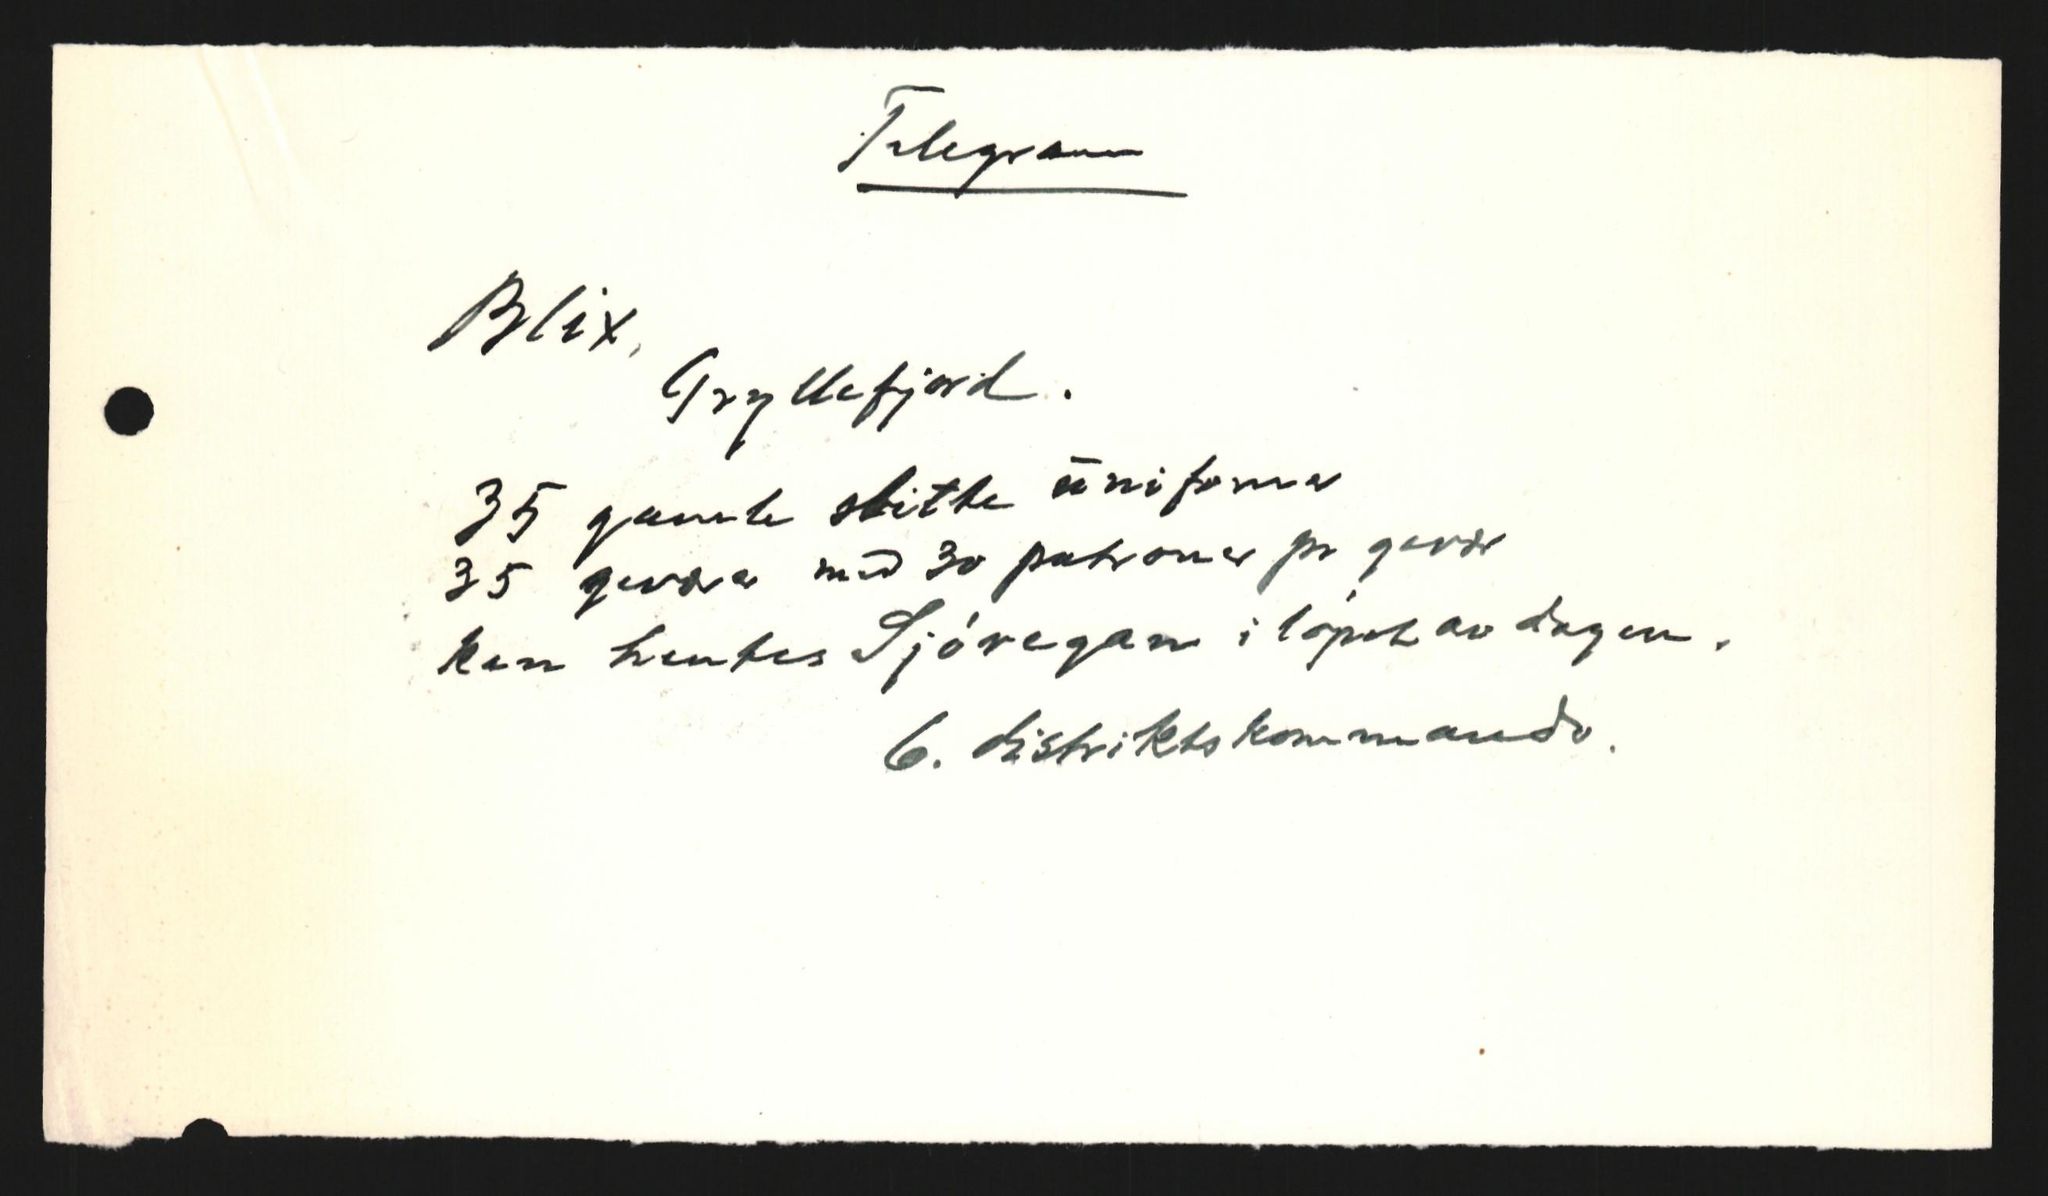 Telegram
Blix,
Gryllefjord.
35 gamle slitte uniformer
35 geværer med 30 patroner pr gevær
kan hentes Sjøvegan i løpet av dagen.
6. distriktskommando.